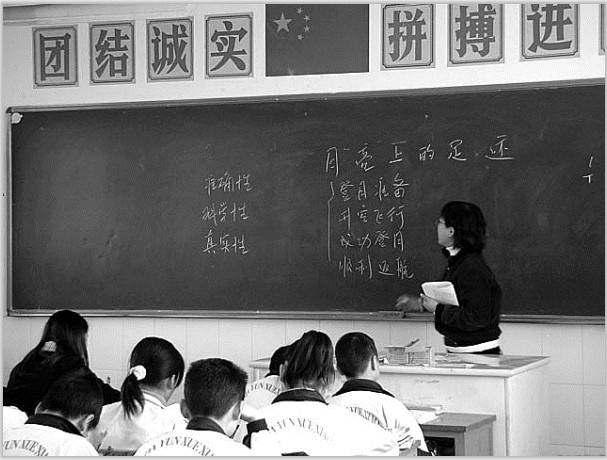 团结诚实 拼搏进
月亮上的足迹
准确性
科学性
真实性
登月准备
升空飞行
成功登月
顺利返航